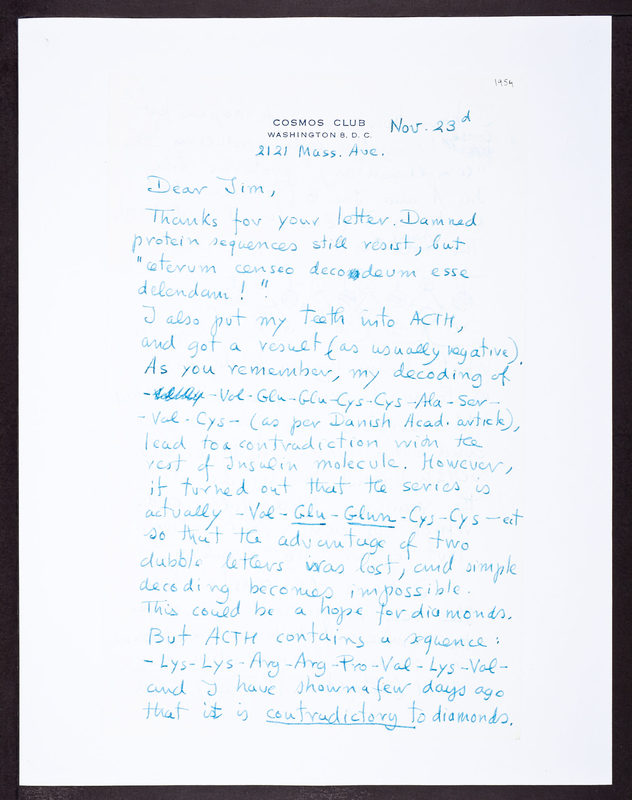 1954
COSMOS CLUB
WASHINGTON 8, D. C.
Nov. 23d
2121 Mass. Ave.
Dear Jim,
Thanks for your letter. Damned
protein sequences still resist, but
"ceterum censeo decodeum esse
delendam! ".
I also put my teeth into ACTH,
and got a result (as usually negative).
As you remember, my decoding of
-Val-Glu-Glu-Cys-Cys-Ala-Ser-
-Val-Cys- (as per Danish Acad. article),
lead to a contradiction with the
rest of Insulin molecule. However,
it turned out that the series is
actually -Val-Glu-Glun-Cys-Cys-ect
so that the advantage of two
dubble letters was lost, and simple
decoding becomes impossible.
This could be a hope for diamonds.
But ACTH contains a sequence:
-Lys-Lys-Arg-Arg-Pro-Val-Lys-Val-
and I have shown a few days ago
that it is contradictory to diamonds.